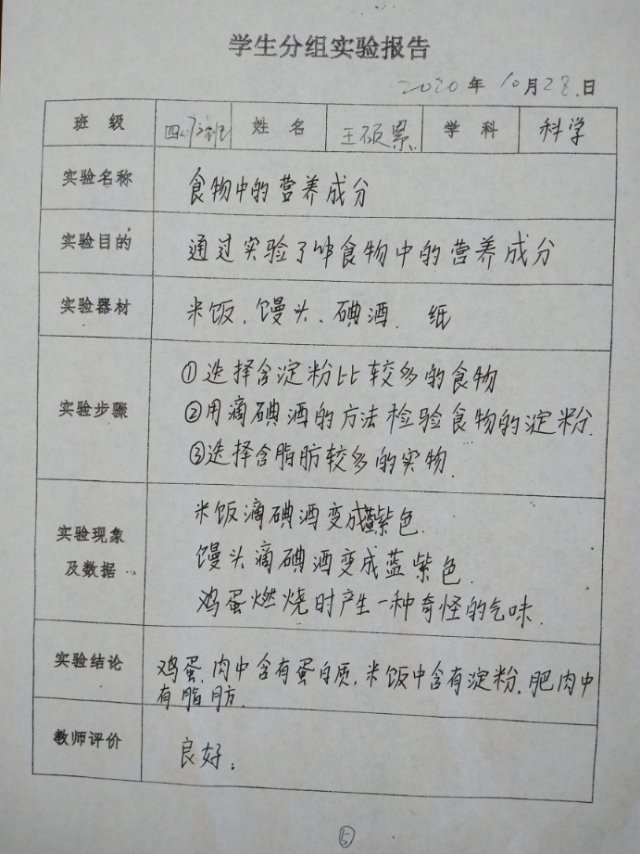 学生分组实验报告
2020年10月28日
班级 四.7班 姓名 王硕累 学科 科学
实验名称 食物中的营养成分
实验目的 通过实验了咔食物中的营养成分
实验器材 米饭、馒头、碘酒、纸
实验步骤 ①选择含淀粉比较多的食物
②用滴碘酒的方法检验食物的淀粉.
③选择含脂肪较多的实物.
实验现象及数据 米饭滴碘酒变成蓝紫色.
馒头滴碘酒变成蓝紫色.
鸡蛋燃烧时产生一种奇怪的气味.
实验结论 鸡蛋.肉中含有蛋白质.米饭中含有淀粉.肥肉中
有脂肪.
教师评价 良好。
⑤